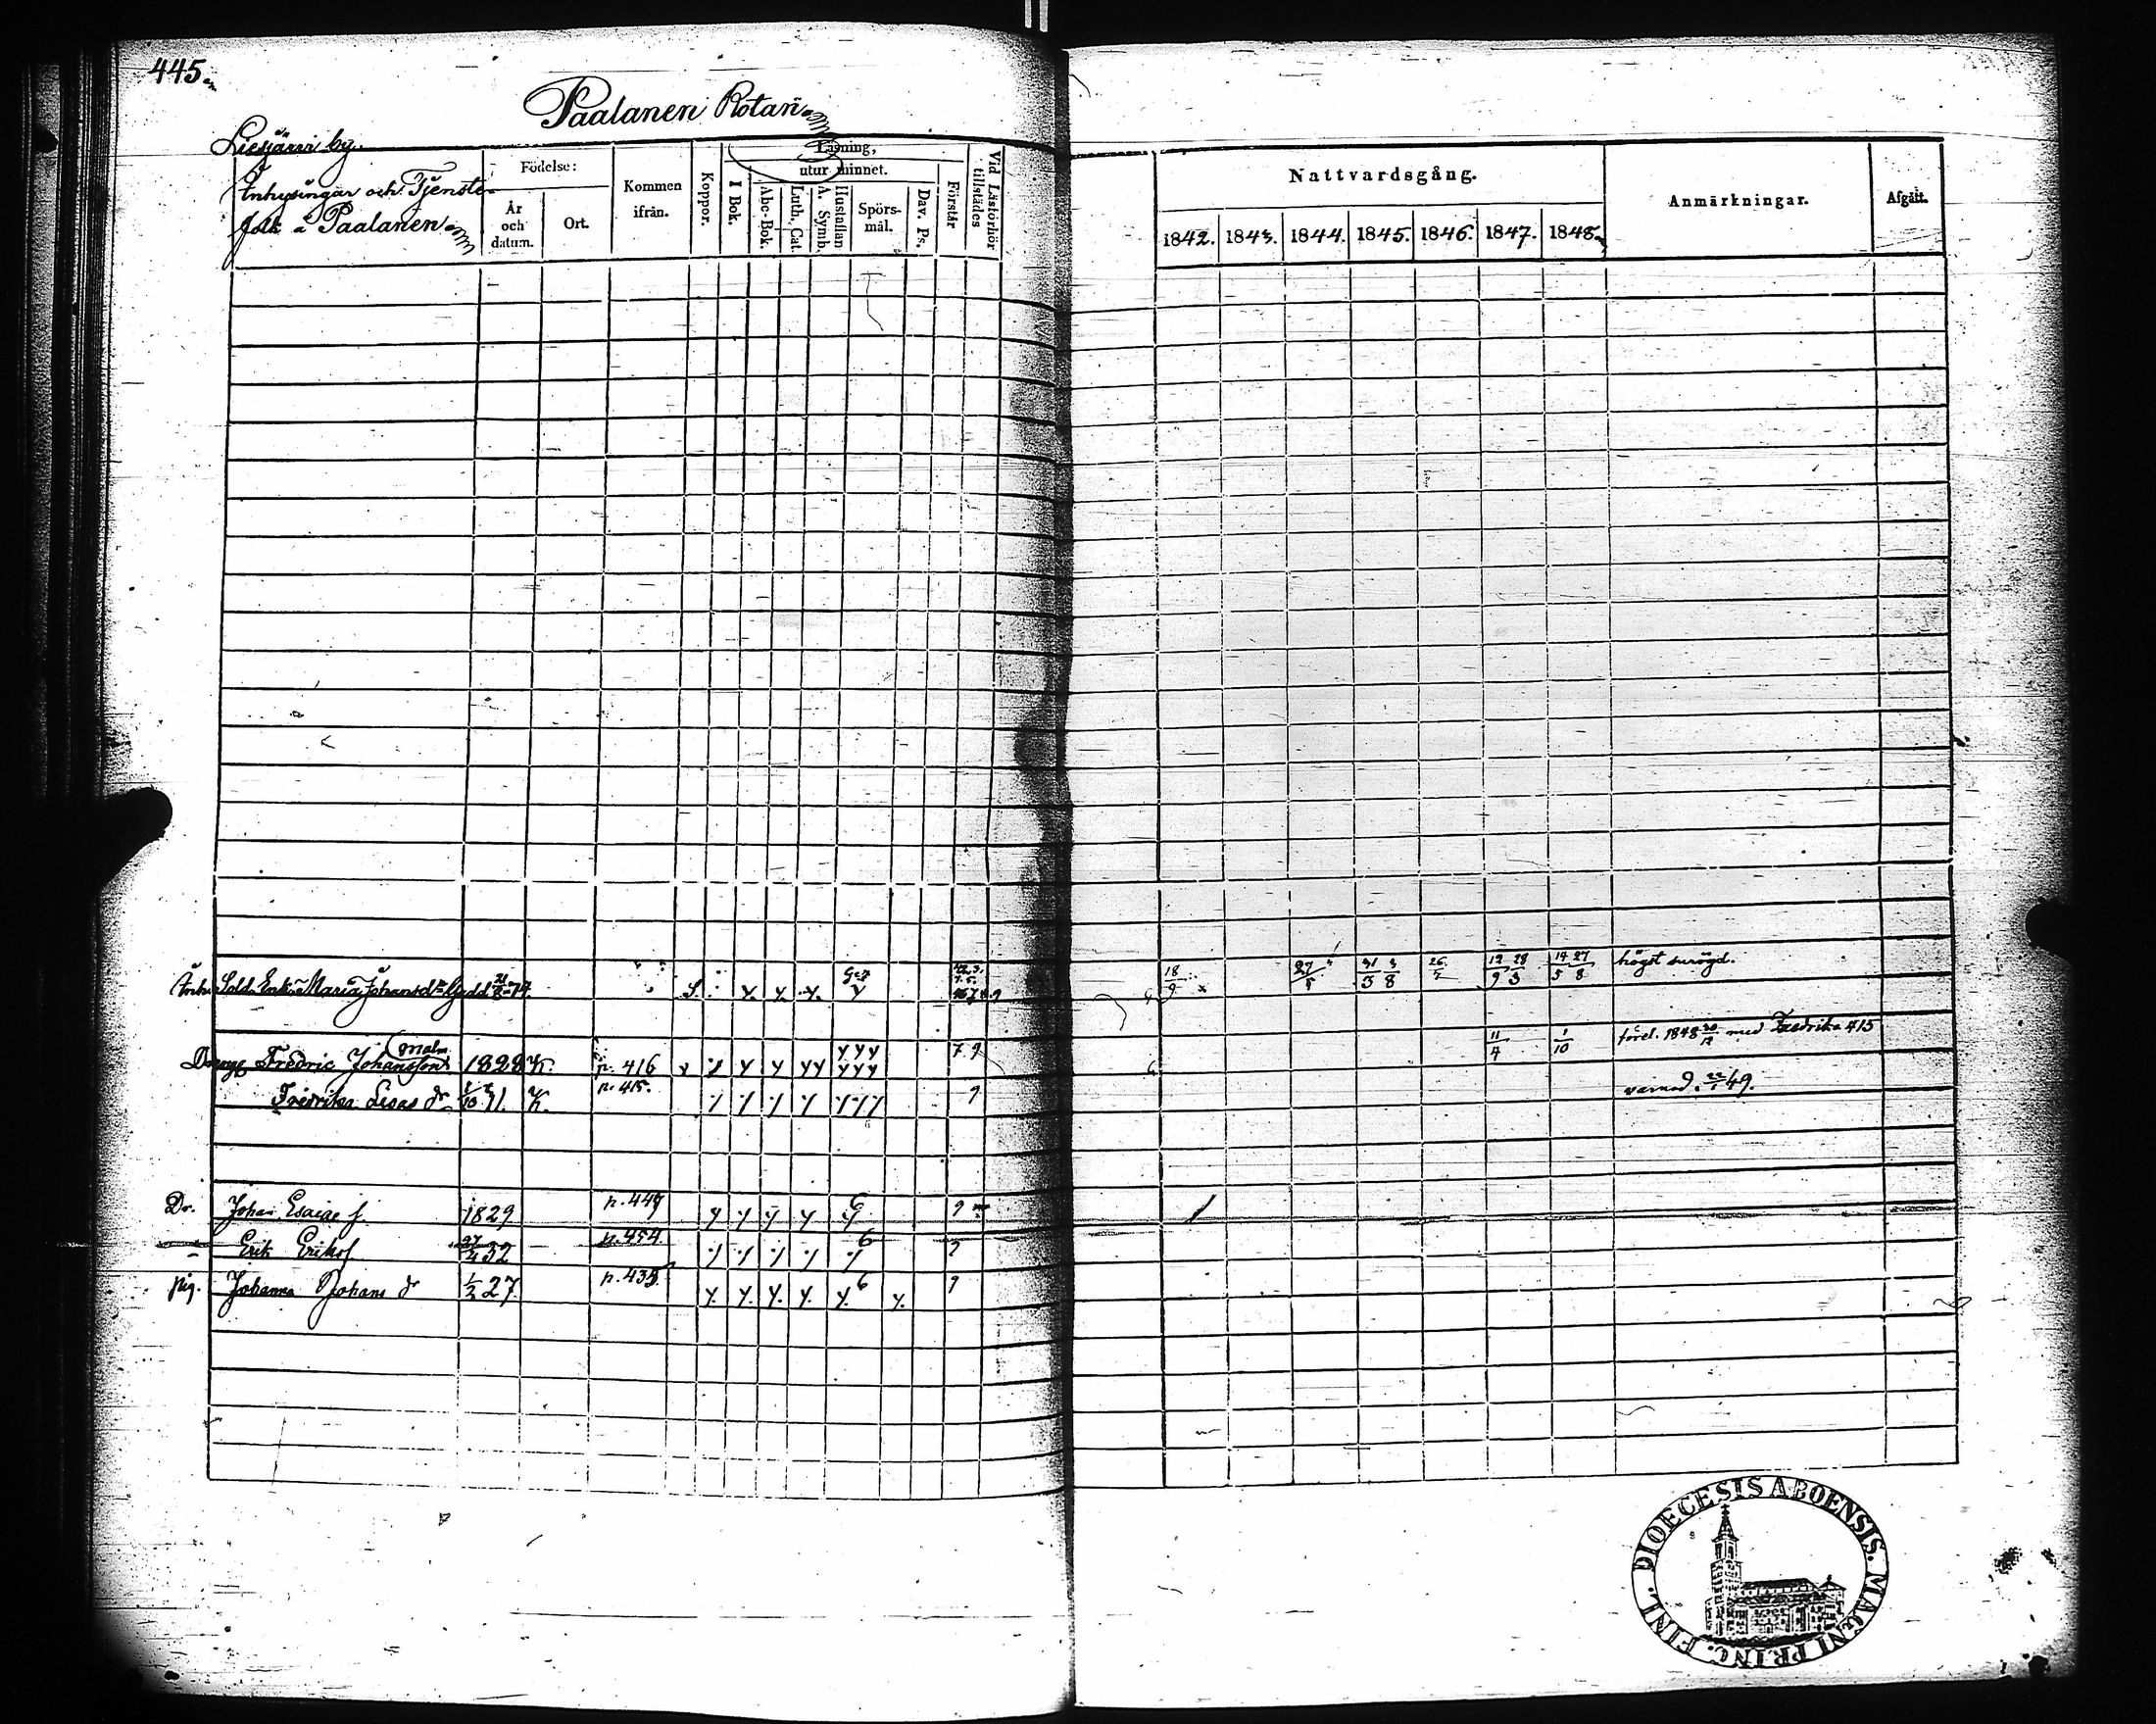 445.
Paalanen Rotan
Liesjärvi by.
Inhysingar och Tjenste-
folk å Paalanen
Födelse:
År och datum.
Ort.
Kommen ifrån.
Koppor.
Läsning,
utur minnet.
I Bok.
Abo-Bok.
Luth. Cat.
A. Symb.
Hustaflan
Spörs-mål.
Dav. Ps.
Förstår
Vid Läsförhör tillstädes
Nattvardsgång.
1842. 1843. 1844. 1845. 1846. 1847. 1848.
Anmärkningar.
Afgått.
Inh. Sold. Enk. Maria Johansd. 74. S. y. y. y. y 18/9 27/5 31/3 3/8 12/9 28/3 14/5 27/8 högst
Malm
Fredric Johansson 1828 K. p. 416 y y y yy yyy yyy 7 9 11/4 1/10 förel. 1848 30/12 med Fredrika 415
Fredrika Lisas dr 1/10 K. p. 415. 9 49.
Dr. Johan Esaias s. 1829 p. 449 y y y y 6 9
Erik Eriks s. 27/4 32 p. 454. 6 9
pig. Johanna Johans dr 1/2 27. p. 435. y. y. y. y. y. 6 y. 9
DIOECESIS ABOENSIS. MAGNI PRINC. FINL.